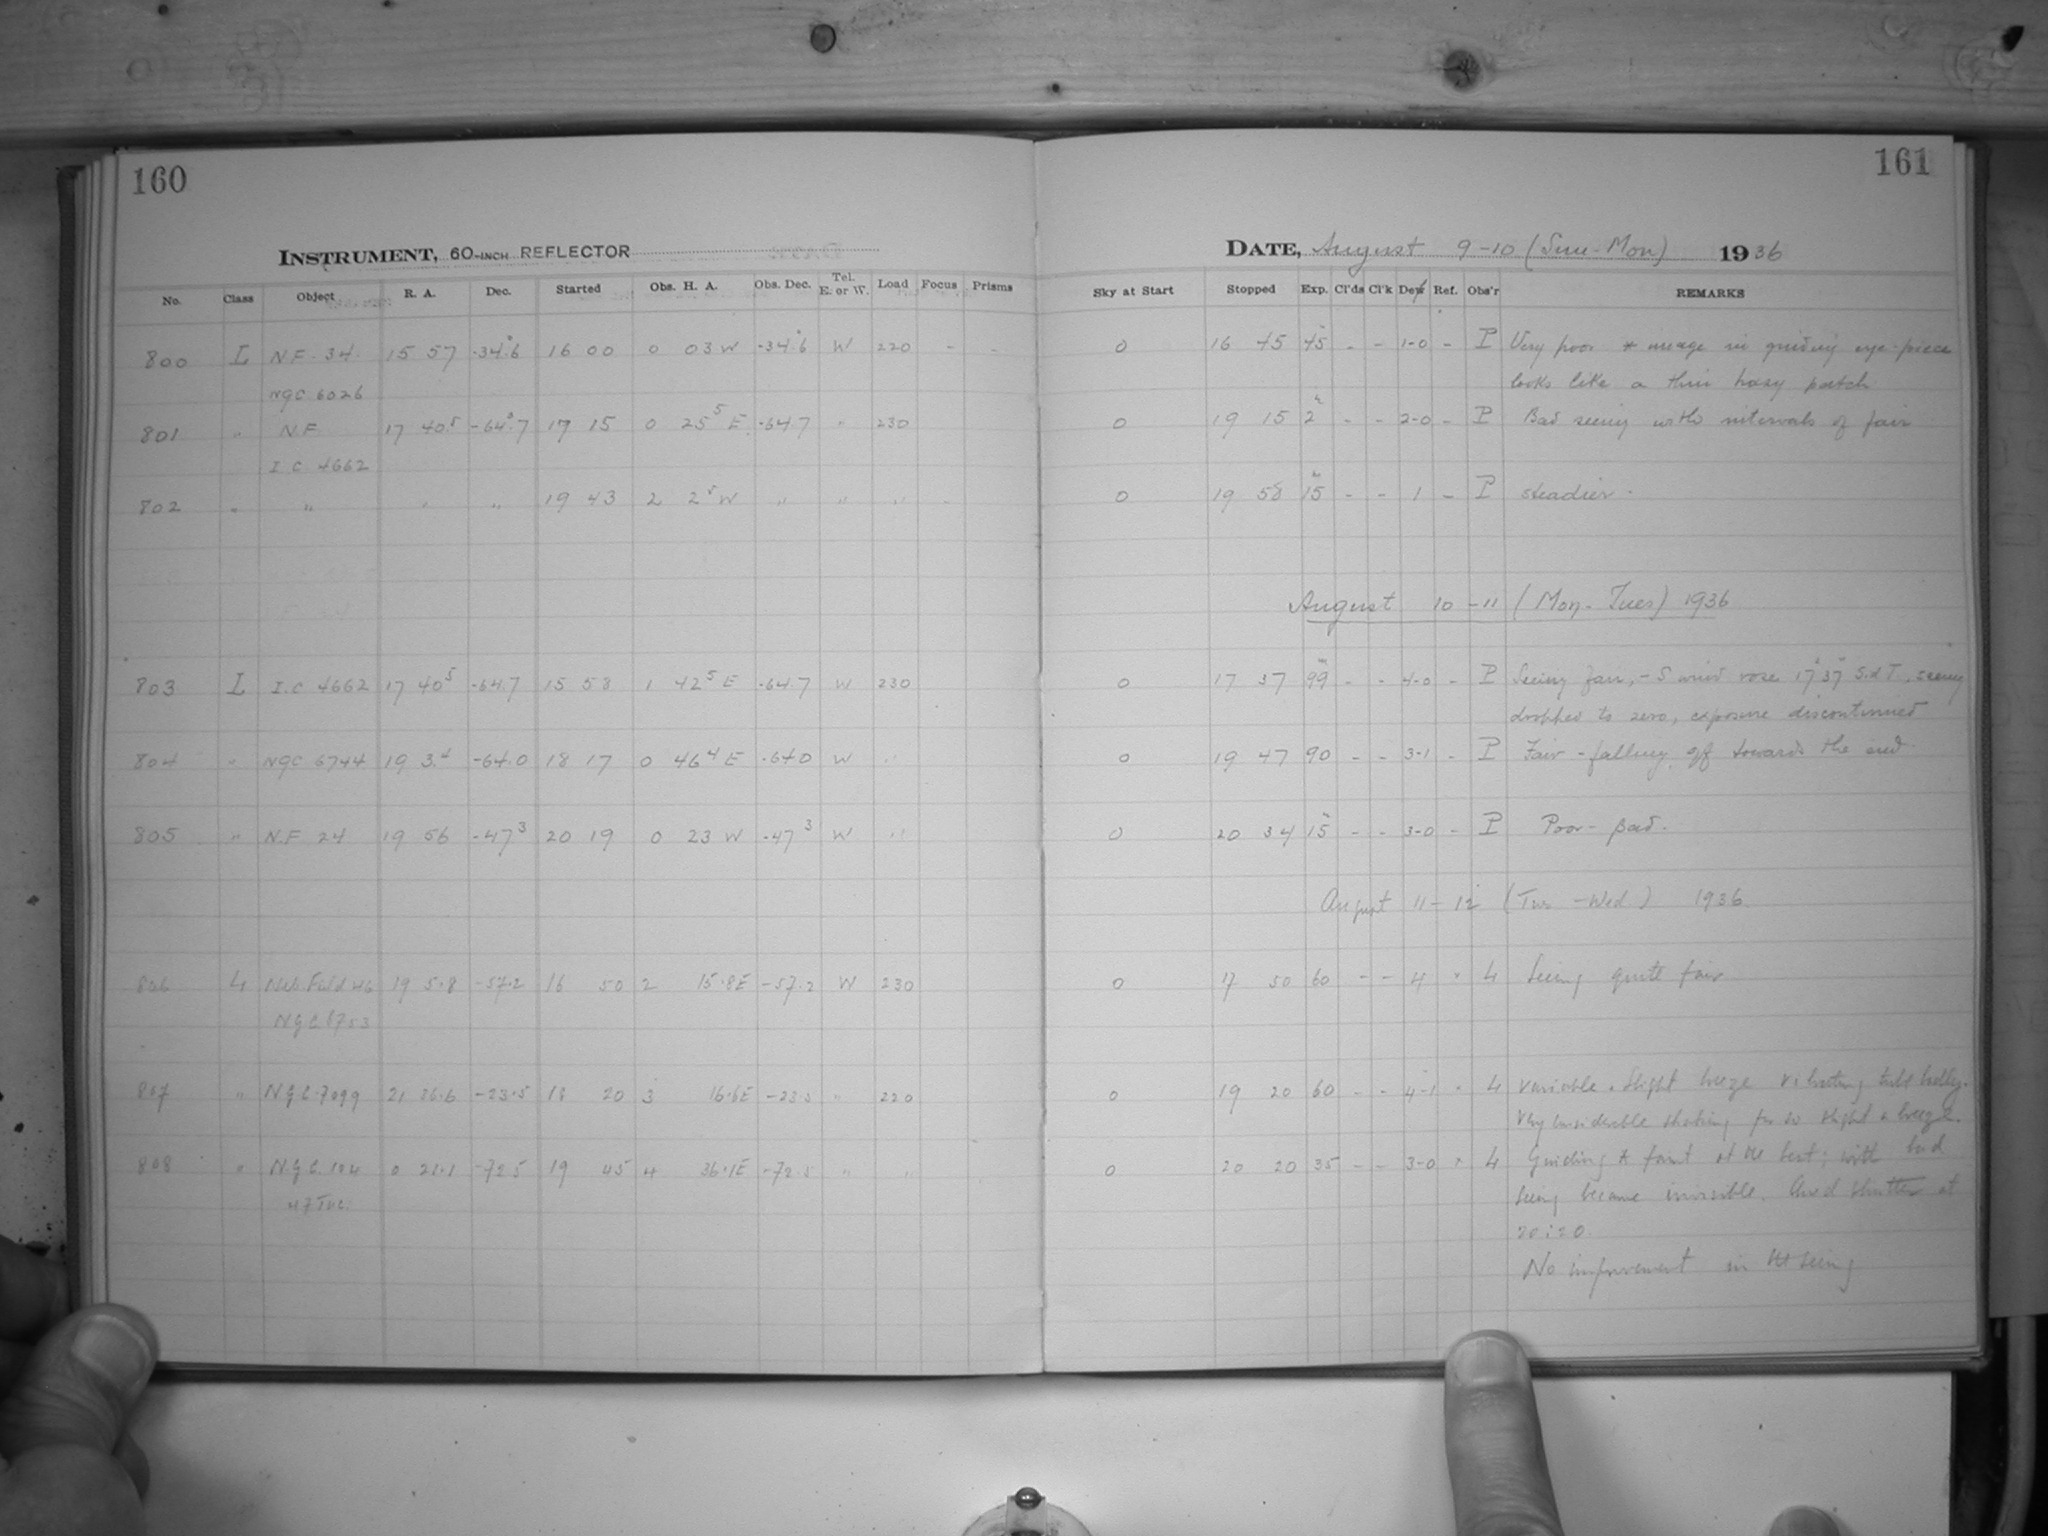 160
161
INSTRUMENT, 60-INCH REFLECTOR
DATE, August 9-10 (Sun-Mon) 1936
No. Class Object R. A. Dec. Started Obs. H. A. Obs. Dec. Tel. E. or W. Load Focus Prisms Sky at Start Stopped Exp. Cl'ds Cl'k Dew Ref. Obs'r REMARKS
800 L N.F. 34 15 57 -34.6 16 00 0 03 W -34.6 W 220 - - 0 16 45 45 - - 1-0 - P Very poor * image in guiding eye-piece
NGC 6026 looks like a thin hazy patch
801 " N.F. 17 40.5 -64.7 17 15 0 25 5 E -64.7 " 230 0 19 15 2 h - - 2-0 - P Bad seeing with intervals of fair
I C 4662
802 " " " " 19 43 2 2 5 W " " " - 0 19 58 15 - - 1 - P steadier.
August 10-11 (Mon-Tues) 1936
803 L I.C 4662 17 40 5 -64.7 15 58 1 42 5 E -64.7 W 230 0 17 37 99 m - - 4-0 - P Seeing fair, - S wind rose 17 37 S.d T. seeing
dropped to zero, exposure discontinued
804 " NGC 6744 19 3.4 -64.0 18 17 0 46 4 E -64.0 W " 0 19 47 90 - - 3-1 - P Fair - falling off towards the end.
805 " N.F 24 19 56 -47 3 20 19 0 23 W -47 3 W " 0 20 34 15 - - 3-0 - P Poor - Bad.
August 11-12 (Tue-Wed) 1936
806 L Neb. Field 46 19 5.8 -57.2 16 50 2 15.8E -57.2 W 230 0 17 50 60 - - 4 " L Seeing quite fair
N.G.C. 6753
807 " N.G.C. 7099 21 36.6 -23.5 18 20 3 16.6E -23.5 " 220 0 19 20 60 - - 4-1 " L Variable. Slight breeze vibrating tube badly.
Very considerable shaking for so slight a breeze.
808 " N.G.C. 104 0 21.1 -72.5 19 45 4 36.1E -72.5 " " 0 20 20 35 - - 3-0 " L Guiding * faint at the best; with bad
47 Tuc. seeing became invisible. shutter at
20:20.
No improvement in the seeing